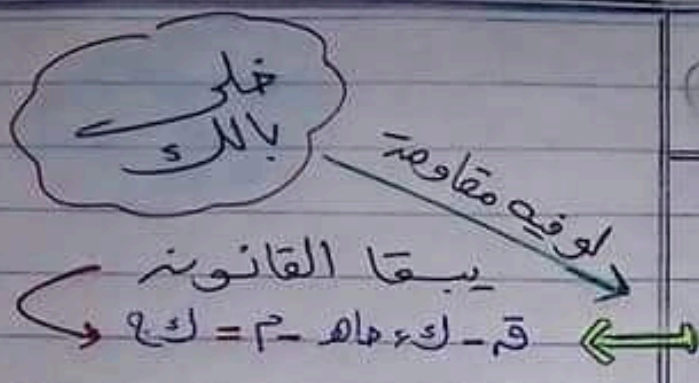 خلى
بالك
لو فيه مقاومة
يبقا القانون
ق - ك ء حاهـ - م = ك ج